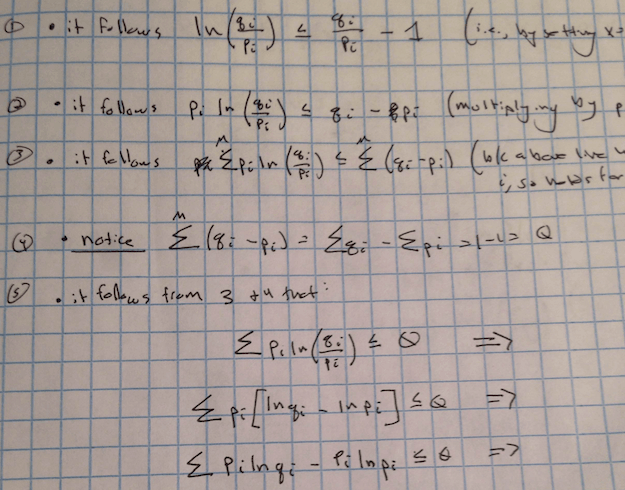 ① • it follows ln(qi/pi) ≤ qi/pi - 1 (i.e., by setting x=
② • it follows pi ln(qi/pi) ≤ qi - pi (multiplying by p
③ • it follows M∑ pi ln(qi/pi) ≤ M∑ (qi-pi) (b/c above true
i, so must for
④ • notice M∑ (qi-pi) = ∑qi - ∑pi = 1-1 = 0
⑤ • it follows from 3 +4 that:
∑ pi ln(qi/pi) ≤ 0 =>
∑ pi[lnqi - lnpi] ≤ 0 =>
∑ pilnqi - pilnpi ≤ 0 =>